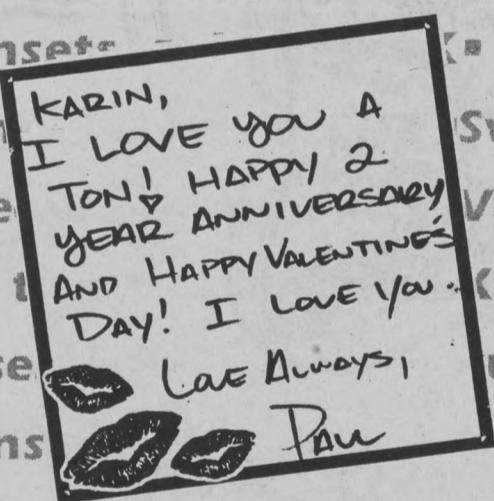 nsets
KARIN,
I LOVE YOU A
TON! HAPPY 2
YEAR ANNIVERSARY
AND HAPPY VALENTINE'S
DAY! I LOVE YOU.
LOVE ALWAYS,
PAUL
ns